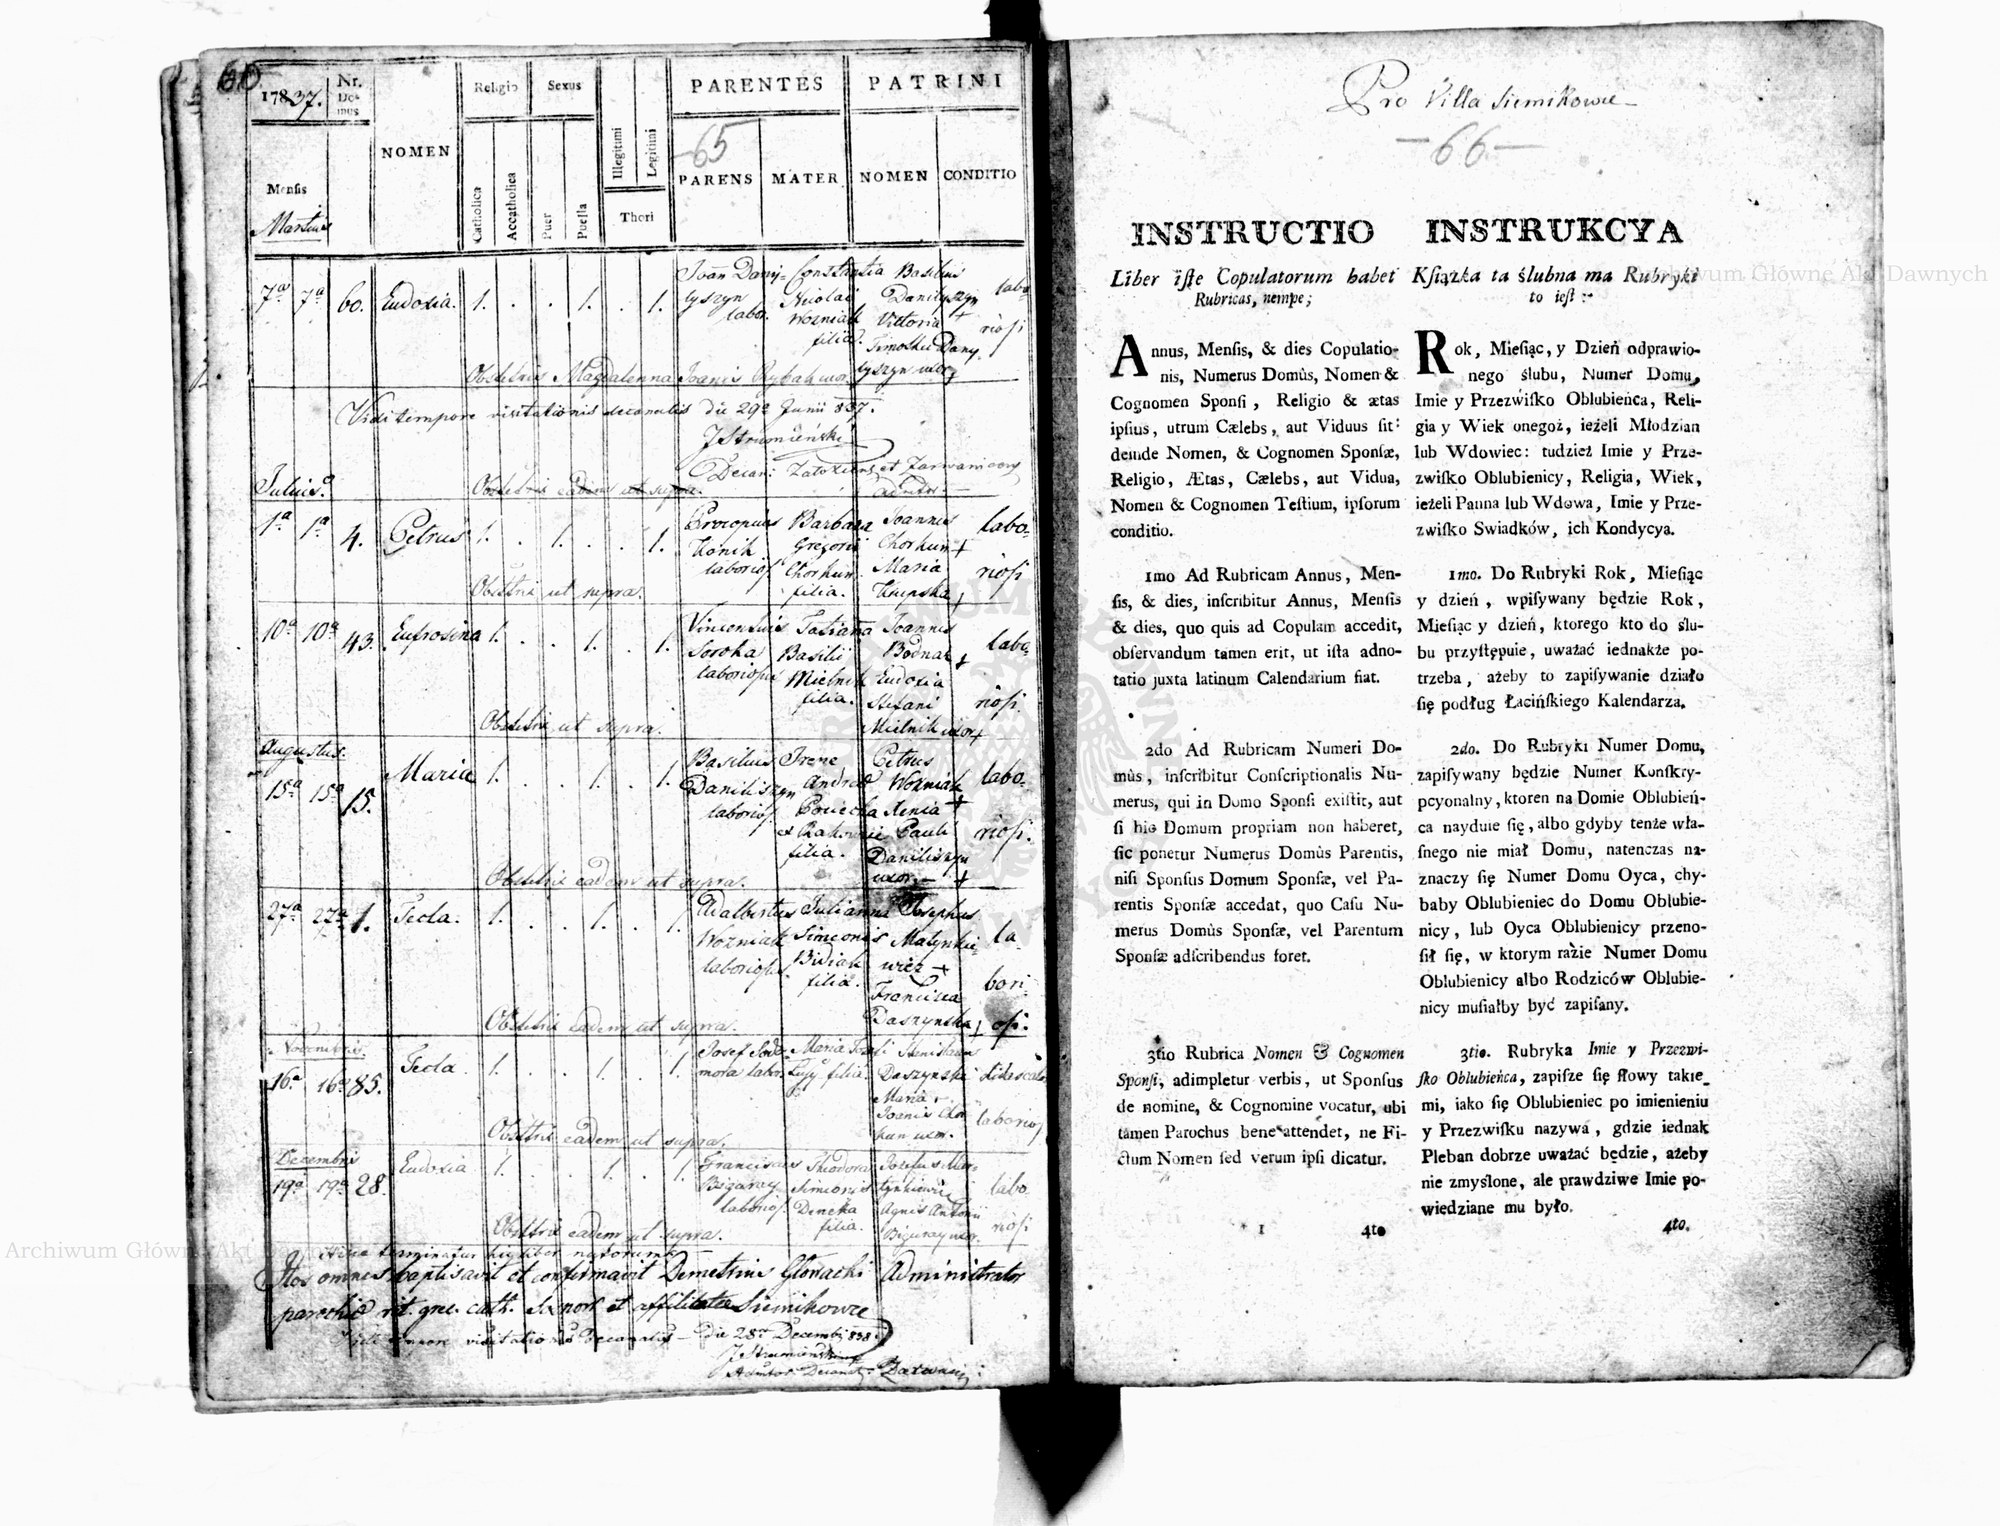 60
1837.
Nr. Domus
NOMEN
Religio
Sexus
PARENTES
PATRINI
Mensis
Martius
Catholica
Accatholica
Puer
Puella
Illegitimi
Legitimi
Thori
-65
PARENS
MATER
NOMEN
CONDITIO
7ª 7ª 60. Eudoxia. 1. . . 1. . 1. Joan Dany- Constantia Basilius labo-
lyszyn Nicolai Danilyszyn +
labor. Wozniak Vittoria riosi
filia. Timothei Dany
Obstetrix Magdalenna Joanis Rybak uxor lyszyn uxor
Vidi tempore visitationis decanalis die 29a Junii 837.
J Strumieński
Decan: et Zarwanicens
Julius.
Obstetrix eadem ut supra.
1ª 1ª 4. Petrus 1. . 1. . . 1. Procopius Barbara Joannes labo-
Konik Gregorii Chorkun +
laborios. Chorkun Maria riosi
filia. Krupska +
Obstetrix ut supra.
10ª 10ª 43. Eufrosina 1. . . 1. . 1. Vincentius Tatianna Joannes labo-
Soroka Basilii Bodnar +
laboriosus Mielnik Eudoxia
filia. Stefani riosi.
Obstetrix ut supra. Mielnik uxor +
Augustus.
15ª 15ª 15. Maria 1. . . 1. . 1. Basilius Irene Petrus labo-
Daniliszyn Andreæ Wozniak +
laborios. Xenia
Pauli riosi.
filia. Daniliszyn
Obstetrix eadem ut supra. uxor +
27ª 27ª 1. Tecla. 1. . . 1. . 1. Adalbertus Julianna Josephus
Wozniak Simeonis Matynkie- la-
laboriosus Bidiak wicz +
filia. Francisca bori-
Obstetrix eadem ut supra. Daszynska + osi.
Novembris.
16ª 16ª 85. Tecla. 1. . . 1. . 1. Josef Sodo- Maria Josefi Stanislaus
mora labor. filia. Daszynski
Maria +
Joanis Chor laborios
Obstetrix eadem ut supra. kun uxor.
Decembris
19ª 19ª 28. Eudoxia 1. . . 1. . 1. Franciscus Theodora Josefus Mar-
Biguney Simeonis tynkiewicz labo
laborios. Deneka Agnis Antonii
filia. Biguney uxor. riosi
Obstetrix eadem ut supra.
terminatur hic liber natorum
Hos omnes baptisavit et confirmavit Demetrius Glowacki Administrator
parochiæ rit. græc. cath. et affiliatæ Siemikowce
Vidi tempore visitationis decanalis die 28a Decembr. 838.
J Strumieński
Admtor Decanat. Zarwanic:
Pro Villa Siemikowce
-66-
INSTRUCTIO
Liber iſte Copulatorum habet
Rubricas, nempe;
Annus, Menſis, & dies Copulatio-
nis, Numerus Domûs, Nomen &
Cognomen Sponſi, Religio & ætas
ipſius, utrum Cælebs, aut Viduus ſit:
deinde Nomen, & Cognomen Sponſæ,
Religio, Ætas, Cælebs, aut Vidua,
Nomen & Cognomen Teſtium, ipſorum
conditio.
1mo Ad Rubricam Annus, Men-
ſis, & dies, inſcribitur Annus, Menſis
& dies, quo quis ad Copulam accedit,
obſervandum tamen erit, ut iſta adno-
tatio juxta latinum Calendarium fiat.
2do Ad Rubricam Numeri Do-
mûs, inſcribitur Conſcriptionalis Nu-
merus, qui in Domo Sponſi exiſtit, aut
ſi hic Domum propriam non haberet,
ſic ponetur Numerus Domûs Parentis,
niſi Sponſus Domum Sponſæ, vel Pa-
rentis Sponſæ accedat, quo Caſu Nu-
merus Domûs Sponſæ, vel Parentum
Sponſæ adſcribendus foret.
3tio Rubrica Nomen & Cognomen
Sponſi, adimpletur verbis, ut Sponſus
de nomine, & Cognomine vocatur, ubi
tamen Parochus bene attendet, ne Fi-
ctum Nomen ſed verum ipſi dicatur.
1 4to
INSTRUKCYA
Kſiążka ta ślubna ma Rubryki
to ieſt :-
Rok, Mieſiąc, y Dzień odprawio-
nego ślubu, Numer Domu,
Imie y Przezwiſko Oblubieńca, Reli-
gia y Wiek onegoż, ieżeli Młodzian
lub Wdowiec: tudzież Imie y Prze-
zwiſko Oblubienicy, Religia, Wiek,
ieżeli Panna lub Wdowa, Imie y Prze-
zwiſko Swiadków, ich Kondycya.
1mo. Do Rubryki Rok, Mieſiąc
y dzień, wpiſywany będzie Rok,
Mieſiąc y dzień, ktorego kto do ślu-
bu przyſtępuie, uważać iednakże po-
trzeba, ażeby to zapiſywanie działo
ſię podług Łacińſkiego Kalendarza.
2do. Do Rubryki Numer Domu,
zapiſywany będzie Numer Konſkry-
pcyonalny, ktoren na Domie Oblubień-
ca nayduie ſię, albo gdyby tenże wła-
ſnego nie miał Domu, natenczas na-
znaczy ſię Numer Domu Oyca, chy-
baby Oblubieniec do Domu Oblubie-
nicy, lub Oyca Oblubienicy przeno-
ſił ſię, w ktorym razie Numer Domu
Oblubienicy albo Rodziców Oblubie-
nicy muſiałby być zapiſany.
3tio. Rubryka Imie y Przezwi-
ſko Oblubieńca, zapiſze ſię ſłowy takie-
mi, iako ſię Oblubieniec po imienieniu
y Przezwiſku nazywa, gdzie iednak
Pleban dobrze uważać będzie, ażeby
nie zmyślone, ale prawdziwe Imie po-
wiedziane mu było.
4to.
Archiwum Główne Akt Dawnych